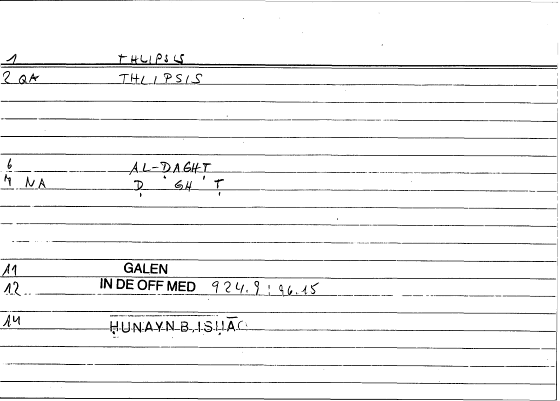 1 THLIPSIS
2 QA THLIPSIS
6 AL-ḌAGHṬ
7 NA Ḍ GH Ṭ
11 GALEN
12 IN DE OFF MED 924.9 ; 96.15
14 ḤUNAYN B. ISḤĀQ